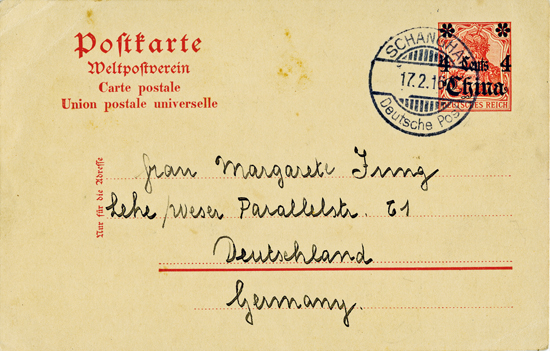 Postkarte
Weltpostverein
Carte postale
Union postale universelle
SCHANGHAI
17.2.16
Deutsche Post
4 Cents 4
China
DEUTSCHES REICH
Nur für die Adresse
Frau Margarete Jung
Lehe /Weser Parallelstr. 61
Deutschland
Germany.